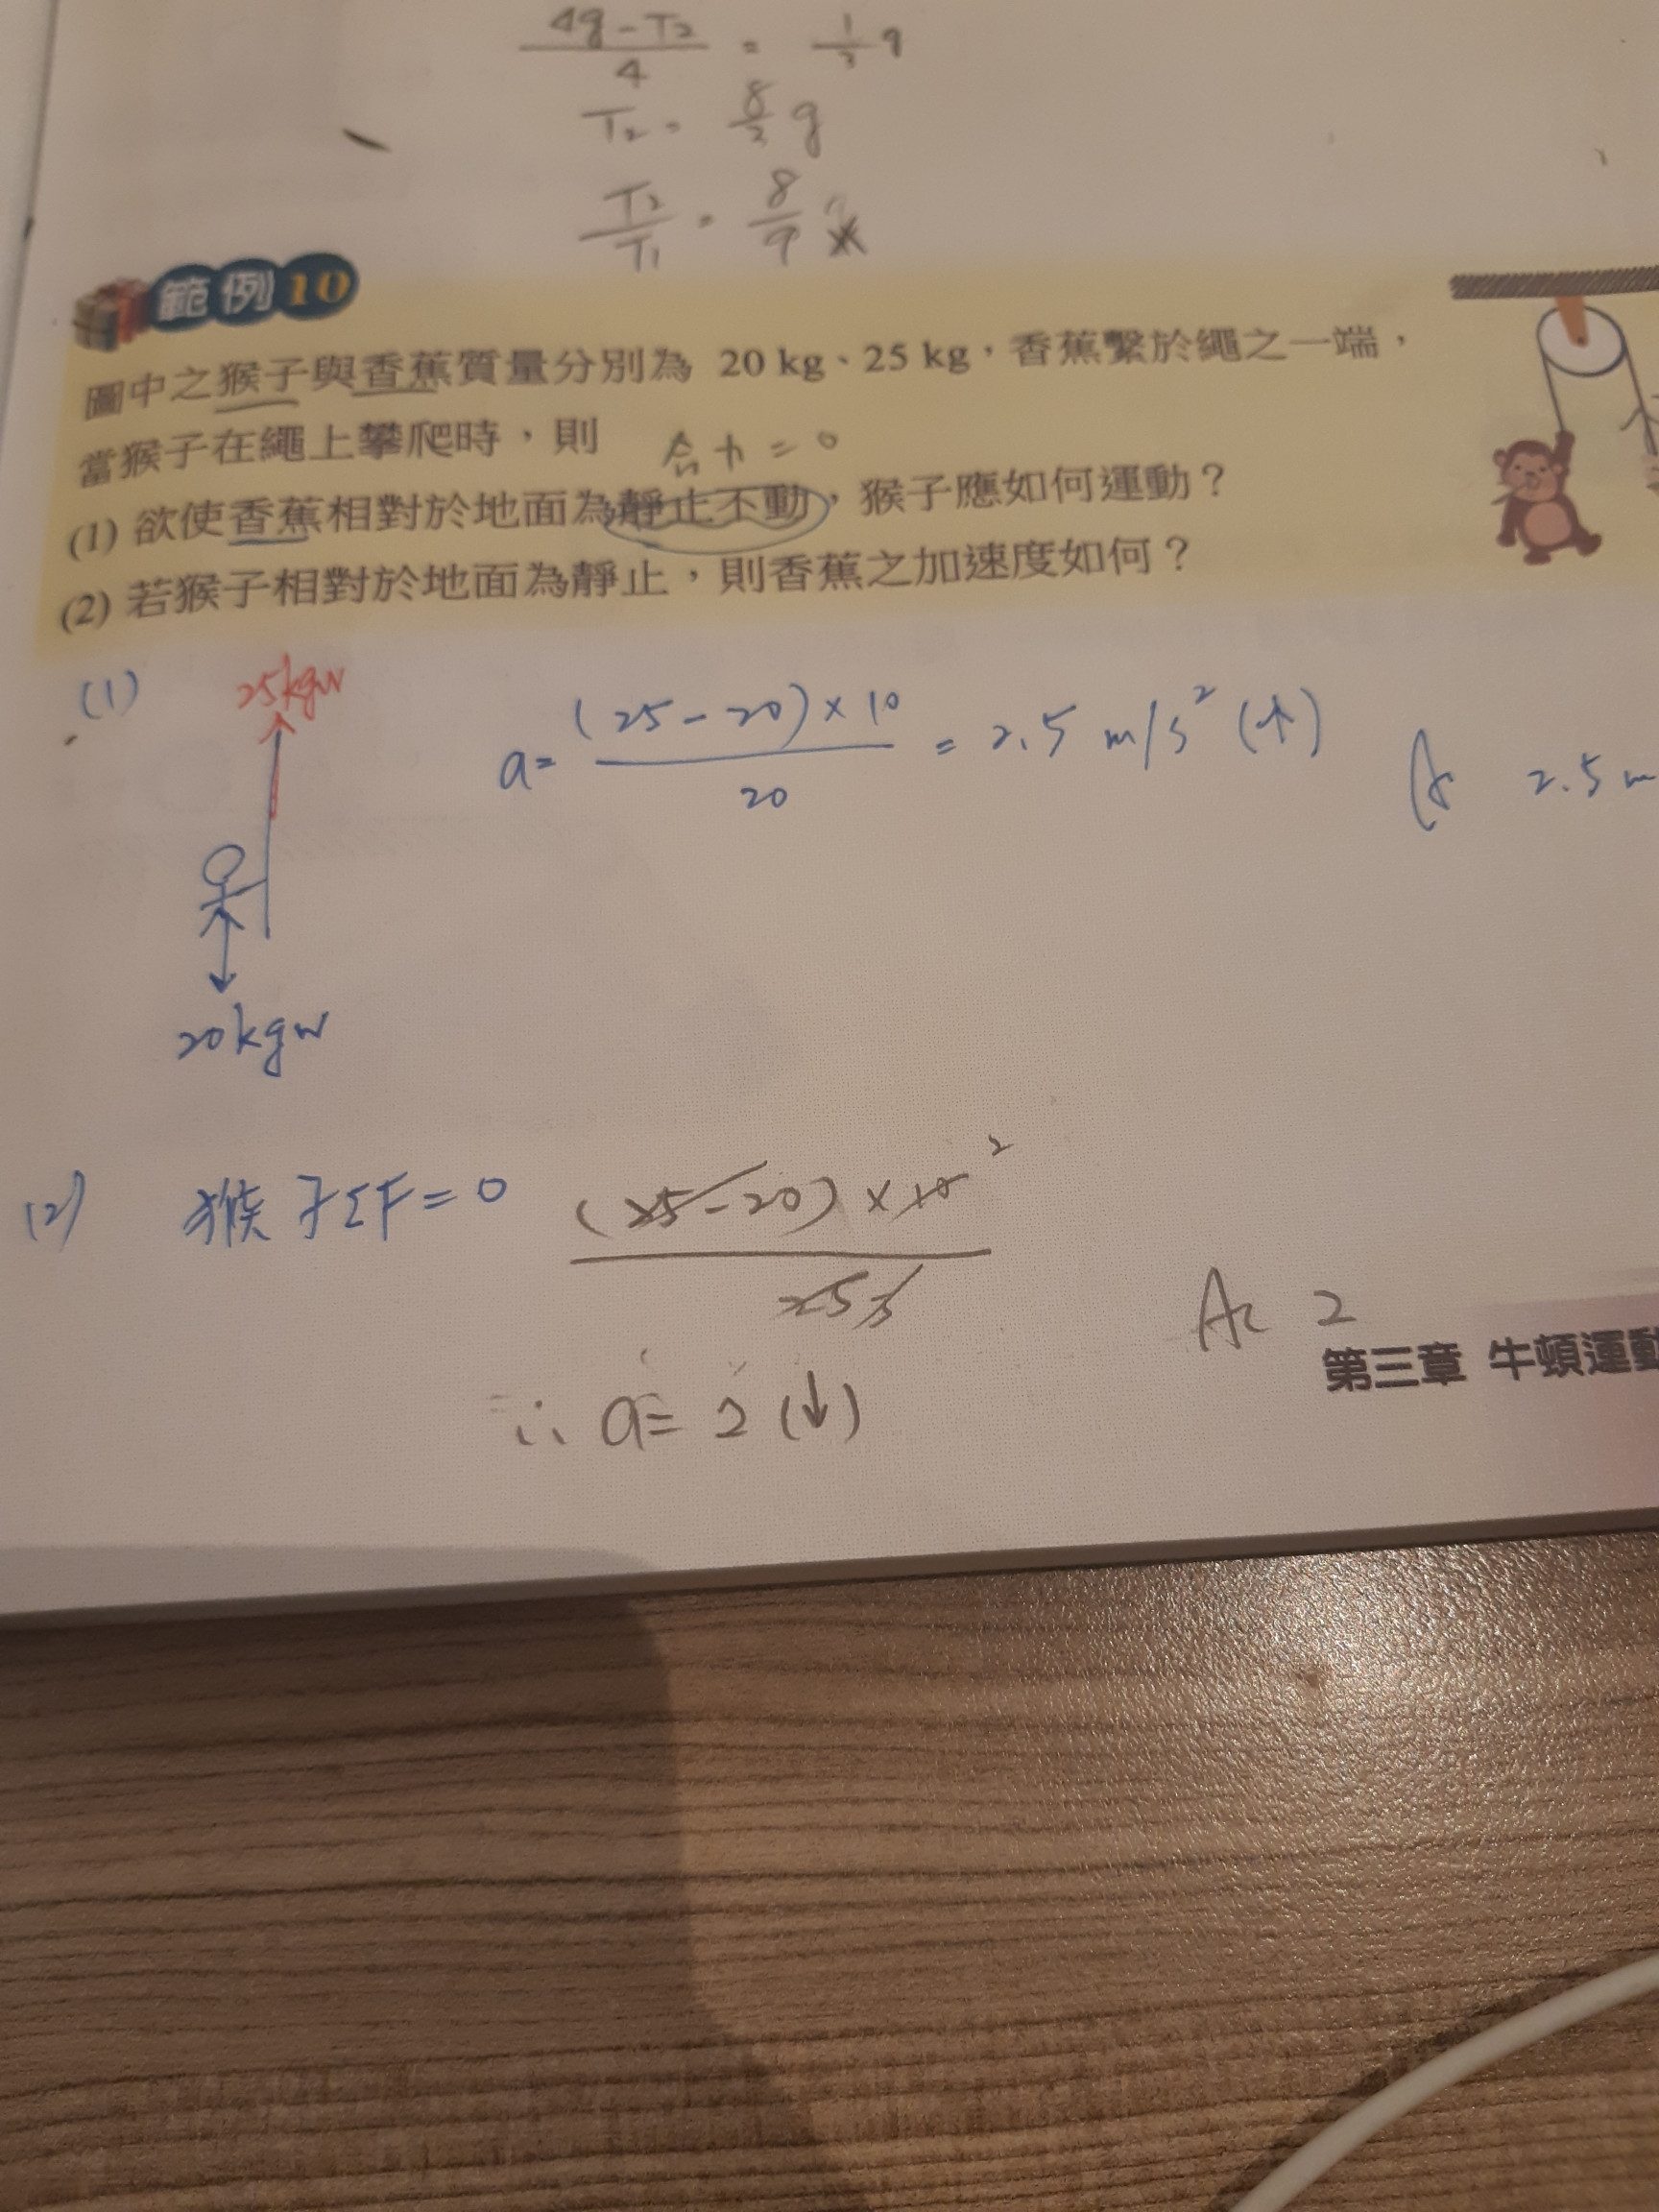 4g-T₂/4 = 1/3 g
T₂ = 8/3 g
T₂/T₁ = 8/9
範例10
圖中之猴子與香蕉質量分別為 20 kg、25 kg，香蕉繫於繩之一端，
當猴子在繩上攀爬時，則 合力=0
(1) 欲使香蕉相對於地面為靜止不動，猴子應如何運動？
(2) 若猴子相對於地面為靜止，則香蕉之加速度如何？
(1) 25kgw a= (25-20)×10/20 = 2.5 m/s² (↑) A 2.5 m
20kgw
(2) 猴子ΣF=0 (25-20)×10 2/25 5
A: 2
∴ a= 2 (↓)
第三章 牛頓運動